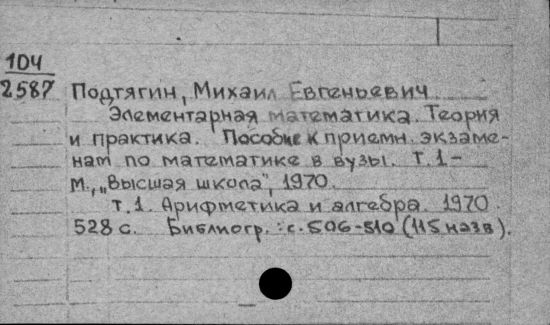 104
2587 Подтягин, Михаил Евгеньевич
Элементарная математика. Теория
и практика. Пособие к приемн. экзаме-
нам по математике в вузы. Т. 1-
М., „Высшая школа", 1970.
т. 1. Арифметика и алгебра. 1970.
528 с. Библиогр.: с. 506-510 (115 назв).